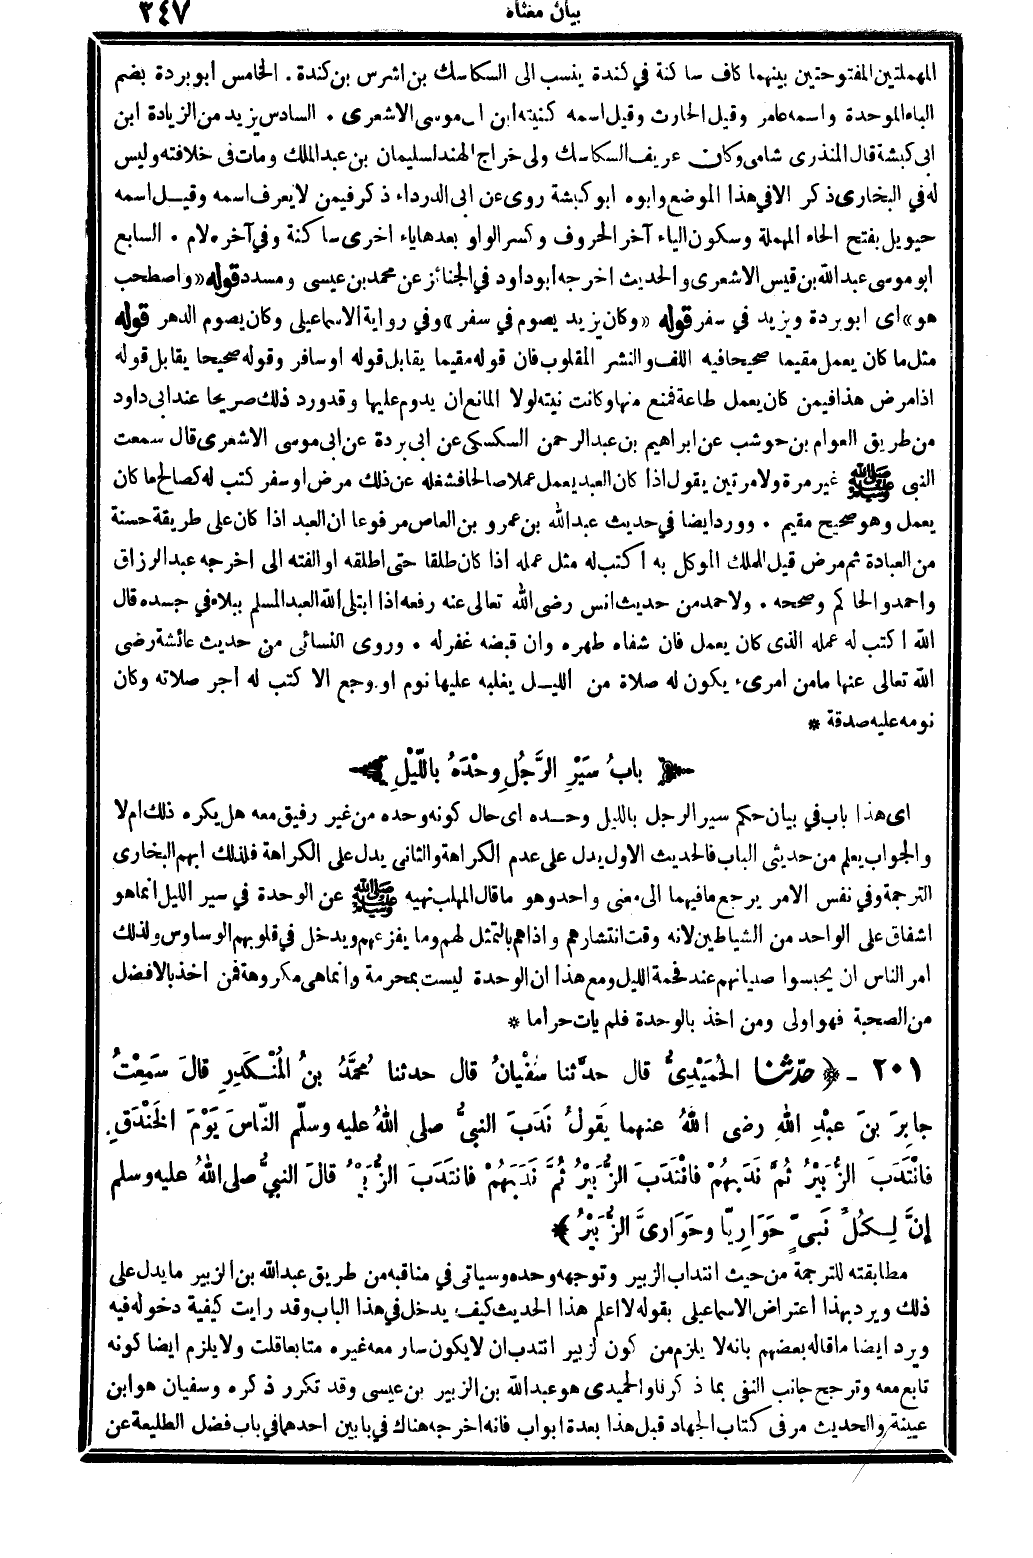 بيان معناه
٢٤٧
المهملتين المفتوحتين بينهما كاف ساكنة في كندة ينسب الى السكاسك بن اشرس بن كندة . الخامس ابو بردة بضم
الباء الموحدة واسمه عامر وقيل الحارث وقيل اسمه كنيته ابن ابى موسى الاشعرى . السادس يزيد من الزيادة ابن
ابى كبشة قال المنذرى شامى وكان عريف السكاسك ولى خراج الهند لسليمان بن عبد الملك ومات فى خلافته وليس
له في البخارى ذكر الا في هذا الموضع وابوه ابو كبشة روى عن ابى الدرداء ذكر فيمن لا يعرف اسمه وقيل اسمه
حيويل بفتح الحاء المهملة وسكون الياء آخر الحروف وكسر الواو بعدها ياء اخرى ساكنة وفي آخره لام . السابع
ابو موسى عبد الله بن قيس الاشعرى والحديث اخرجه ابو داود في الجنائز عن محمد بن عيسى ومسدد قوله «واصطحب
هو» اى ابو بردة ويزيد في سفر قوله «وكان يزيد يصوم في سفر» وفي رواية الاسماعيلى وكان يصوم الدهر قوله
مثل ما كان يعمل مقيما صحيحا فيه اللف والنشر المقلوب فان قوله مقيما يقابل قوله او سافر وقوله صحيحا يقابل قوله
اذا مرض هذا فيمن كان يعمل طاعة فمنع منها وكانت نيته لولا المانع ان يدوم عليها وقد ورد ذلك صريحا عند ابى داود
من طريق العوام بن حوشب عن ابراهيم بن عبد الرحمن السكسكى عن ابى بردة عن ابى موسى الاشعرى قال سمعت
النبى ﷺ غير مرة ولا مرتين يقول اذا كان العبد يعمل عملا صالحا فشغله عن ذلك مرض او سفر كتب له كصالح ما كان
يعمل وهو صحيح مقيم . وورد ايضا في حديث عبد الله بن عمرو بن العاص مرفوعا ان العبد اذا كان على طريقة حسنة
من العبادة ثم مرض قيل للملك الموكل به اكتب له مثل عمله اذا كان طلقا حتى اطلقه او الفته الى اخرجه عبد الرزاق
واحمد والحاكم وصححه . ولاحمد من حديث انس رضى الله تعالى عنه رفعه اذا ابتلى الله العبد المسلم ببلاء في جسده قال
الله اكتب له عمله الذى كان يعمل فان شفاه طهره وان قبضه غفر له . وروى النسائى من حديث عائشة رضى
الله تعالى عنها ما من امرىء يكون له صلاة من الليل يغلبه عليها نوم او وجع الا كتب له أجر صلاته وكان
نومه عليه صدقة *
بابُ سَيْرِ الرَّجُلِ وحْدَهُ باللَّيْلِ
اى هذا باب في بيان حكم سير الرجل بالليل وحده اى حال كونه وحده من غير رفيق معه هل يكره ذلك ام لا
والجواب يعلم من حديثى الباب فالحديث الاول يدل على عدم الكراهة والثانى يدل على الكراهة فلذلك ابهم البخارى
الترجمة وفي نفس الامر يرجع ما فيهما الى معنى واحد وهو ما قال المهلب نهيه ﷺ عن الوحدة في سير الليل انما هو
اشفاق على الواحد من الشياطين لانه وقت انتشارهم واذاهم بالتمثل لهم وما يفزعهم ويدخل في قلوبهم الوساوس ولذلك
امر الناس ان يحبسوا صبيانهم عند فحمة الليل ومع هذا ان الوحدة ليست بمحرمة وانما هى مكروهة فمن اخذ بالافضل
من الصحبة فهو اولى ومن اخذ بالوحدة فلم يات حراما *
٢٠١ - ﴿ حدّثنا الحُمَيْدِىُّ قال حدّثنا سُفْيانُ قال حدثنا مُحمَّدُ بنُ المُنْكَدِرِ قالَ سَمِعْتُ
جابِرَ بنَ عبْدِ اللهِ رضى اللهُ عنهما يَقُولُ نَدَبَ النبىُّ صلى اللهُ عليه وسلّم النّاسَ يَوْمَ الخَنْدَقِ
فانْتَدَبَ الزُّبَيْرُ ثُمَّ نَدَبهُمْ فانْتَدَبَ الزُّبَيْرُ ثُمَّ نَدَبَهُمْ فانتَدَبَ الزُّبَيْرُ قالَ النبىُّ صلى اللهُ عليه وسلم
إنَّ لِكُلِّ نَبىٍّ حَوَارِيّا وحَوَارىَّ الزُّبَيْرُ ﴾
مطابقته للترجمة من حيث انتداب الزبير وتوجهه وحده وسياتى في مناقبه من طريق عبد الله بن الزبير ما يدل على
ذلك ويرد بهذا اعتراض الاسماعيلى بقوله لا اعلم هذا الحديث كيف يدخل في هذا الباب وقد رايت كيفية دخوله فيه
ويرد ايضا ما قاله بعضهم بانه لا يلزم من كون الزبير انتدب ان لا يكون سار معه غيره متابعا قلت ولا يلزم ايضا كونه
تابع معه وترجح جانب النفى بما ذكرنا والحميدى هو عبد الله بن الزبير بن عيسى وقد تكرر ذكره وسفيان هو ابن
عيينة والحديث مر فى كتاب الجهاد قبل هذا بعدة ابواب فانه اخرجه هناك في بابين احدهما في باب فضل الطليعة عن